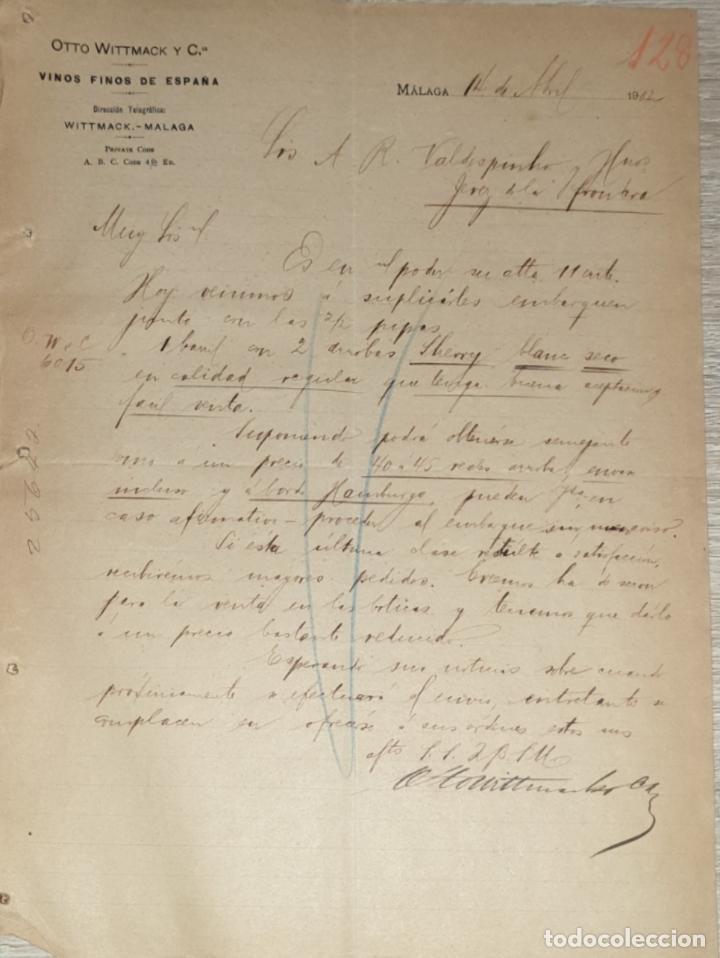 OTTO WITTMACK Y C.ia
VINOS FINOS DE ESPAÑA
Dirección Telegráfica:
WITTMACK.-MALAGA
PRIVATE CODE
A. B. C. CODE 4th ED.
128
MÁLAGA 14 de Abril 1912
Srs A. R. Valdespino y Hnos
Jerez de la Frontera
Muy Srs
Es en poder su atta 11 cnte.
Hoy venimos á suplicarles embarquen
junto con las 2/2 pipas
O. W & C
6015
1 baril con 2 arrobas Sherry blanc seco
en calidad regular que tenga buena aceptacion y
facil venta.
Suponiendo podrá obtenerse semejante
vino á un precio de 40 á 45 reales arroba, envase
incluso y á bordo Hamburgo, pueden Vds en
caso afirmativo - proceder al embarque sin mas aviso.
Si ésta última clase resulte a satisfacción,
recibiremos mayores pedidos. Creemos ha de servir
para la venta en las boticas y tenemos que darlo
á un precio bastante reducido.
Esperando sus noticias sobre cuando
próximamente se efectuará el envio, entretanto se
complacen en ofrecerse á sus ordenes estos sus
afts S. S. Q. B. S. M.
Otto Wittmack y Cia
25622
todocoleccion.net